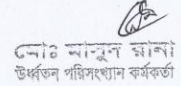 মোঃ মামুন রানা
উর্ধ্বতন পরিসংখ্যান কর্মকর্তা